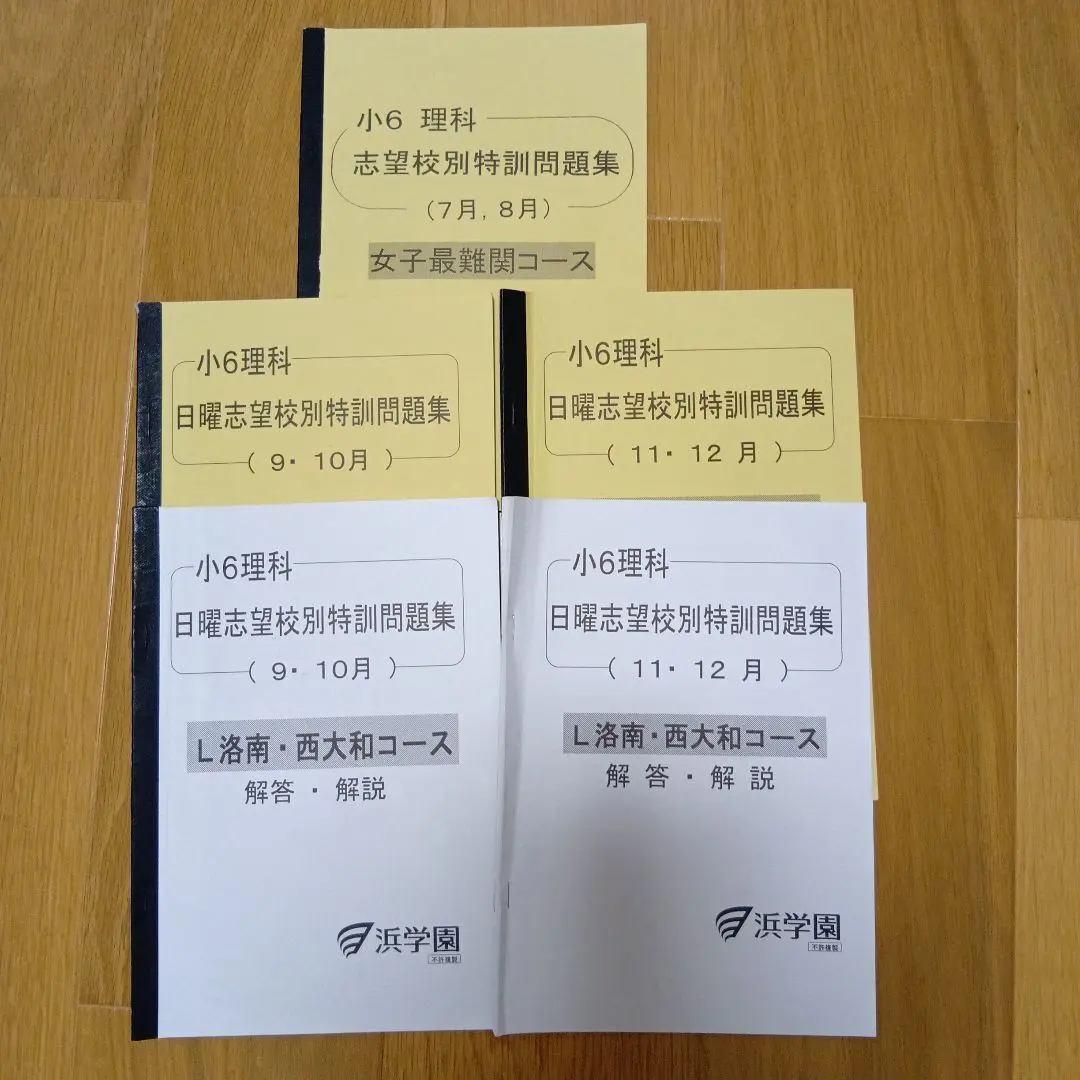 小6 理科
志望校別特訓問題集
(7月, 8月)
女子最難関コース
小6理科
日曜志望校別特訓問題集
( 9・ 10月 )
小6理科
日曜志望校別特訓問題集
( 11・ 12 月 )
小6理科
日曜志望校別特訓問題集
( 9・ 10月 )
L洛南・西大和コース
解答・解説
浜学園
不許複製
小6理科
日曜志望校別特訓問題集
( 11・ 12 月 )
L洛南・西大和コース
解 答 ・ 解 説
浜学園
不許複製